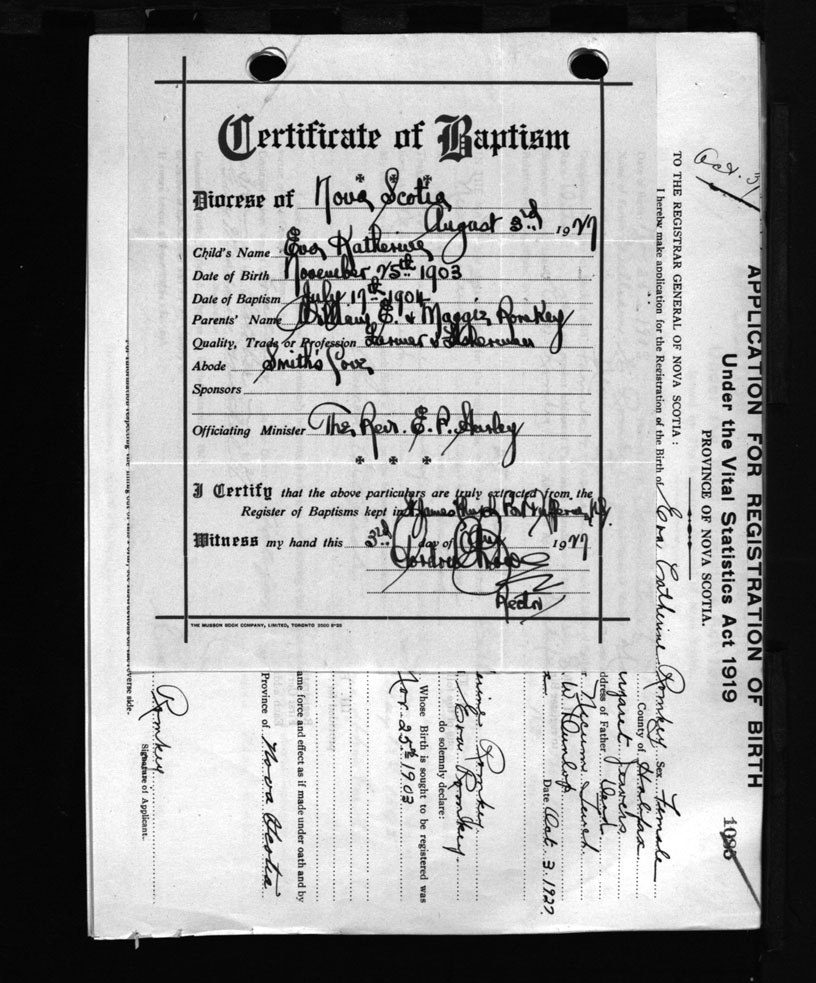 Certificate of Baptism
Diocese of Nova Scotia
August 3rd 1927
Child's Name Eva Katherine
Date of Birth November 25th 1903
Date of Baptism July 17th 1904
Parents' Name William E. & Maggie Romkey
Quality, Trade or Profession Farmer & Fisherman
Abode Smith's Cove
Sponsors
Officiating Minister The Rev. E. P. Hurley
I Certify that the above particulars are truly extracted from the
Register of Baptisms kept in St James Church Port Dufferin, N.S.
Witness my hand this 3rd day of Aug 1927
Rector
THE MUSSON BOOK COMPANY, LIMITED, TORONTO 2000 8-25
APPLICATION FOR REGISTRATION OF BIRTH
Under the Vital Statistics Act 1919
PROVINCE OF NOVA SCOTIA.
1086
Oct. 3/
TO THE REGISTRAR GENERAL OF NOVA SCOTIA:
I hereby make application for the Registration of the Birth of Eva Catherine Romkey Sex Female
County of Halifax
ddress of Father Decd.
Necum Teuch
W Dunlop
Date Oct. 3. 1927.
Romkey
Eva Romkey.
do solemnly declare:
Whose Birth is sought to be registered was
Nov. 25th 1903
ame force and effect as if made under oath and by
Province of Nova Scotia
Romkey
Signature of Applicant.
reverse side.